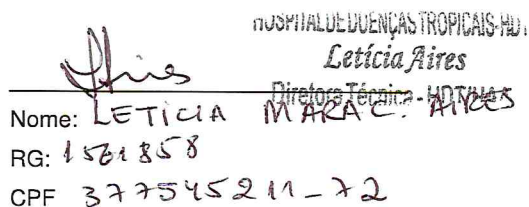 HOSPITAL DE DOENÇAS TROPICAIS-HDT
Letícia Aires
Diretora Técnica - HDT/HAA
Nome: LETÍCIA MARA C. AIRES
RG: 1561858
CPF 377545211-72